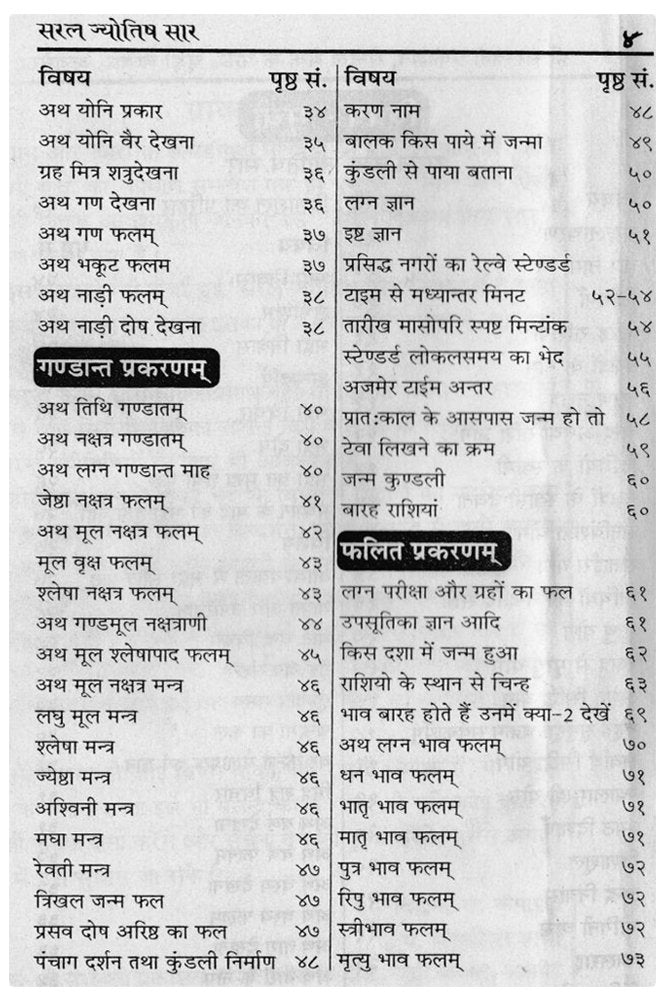 सरल ज्योतिष सार ४
विषय पृष्ठ सं.
अथ योनि प्रकार ३४
अथ योनि वैर देखना ३५
ग्रह मित्र शत्रुदेखना ३६
अथ गण देखना ३६
अथ गण फलम् ३७
अथ भकूट फलम ३७
अथ नाड़ी फलम् ३८
अथ नाड़ी दोष देखना ३८
गण्डान्त प्रकरणम्
अथ तिथि गण्डातम् ४०
अथ नक्षत्र गण्डातम् ४०
अथ लग्न गण्डान्त माह ४०
जेष्ठा नक्षत्र फलम् ४१
अथ मूल नक्षत्र फलम् ४२
मूल वृक्ष फलम् ४३
श्लेषा नक्षत्र फलम् ४३
अथ गण्डमूल नक्षत्राणी ४४
अथ मूल श्लेषापाद फलम् ४५
अथ मूल नक्षत्र मन्त्र ४६
लघु मूल मन्त्र ४६
श्लेषा मन्त्र ४६
ज्येष्ठा मन्त्र ४६
अश्विनी मन्त्र ४६
मघा मन्त्र ४६
रेवती मन्त्र ४७
त्रिखल जन्म फल ४७
प्रसव दोष अरिष्ठ का फल ४७
पंचाग दर्शन तथा कुंडली निर्माण ४८
विषय पृष्ठ सं.
करण नाम ४८
बालक किस पाये में जन्मा ४९
कुंडली से पाया बताना ५०
लग्न ज्ञान ५०
इष्ट ज्ञान ५१
प्रसिद्ध नगरों का रेल्वे स्टेण्डर्ड
टाइम से मध्यान्तर मिनट ५२-५४
तारीख मासोपरि स्पष्ट मिन्टांक ५४
स्टेण्डर्ड लोकलसमय का भेद ५५
अजमेर टाईम अन्तर ५६
प्रात:काल के आसपास जन्म हो तो ५८
टेवा लिखने का क्रम ५९
जन्म कुण्डली ६०
बारह राशियां ६०
फलित प्रकरणम्
लग्न परीक्षा और ग्रहों का फल ६१
उपसूतिका ज्ञान आदि ६१
किस दशा में जन्म हुआ ६२
राशियो के स्थान से चिन्ह ६३
भाव बारह होते हैं उनमें क्या-2 देखें ६९
अथ लग्न भाव फलम् ७०
धन भाव फलम् ७१
भातृ भाव फलम् ७१
मातृ भाव फलम् ७१
पुत्र भाव फलम् ७२
रिपु भाव फलम् ७२
स्त्रीभाव फलम् ७२
मृत्यु भाव फलम् ७३